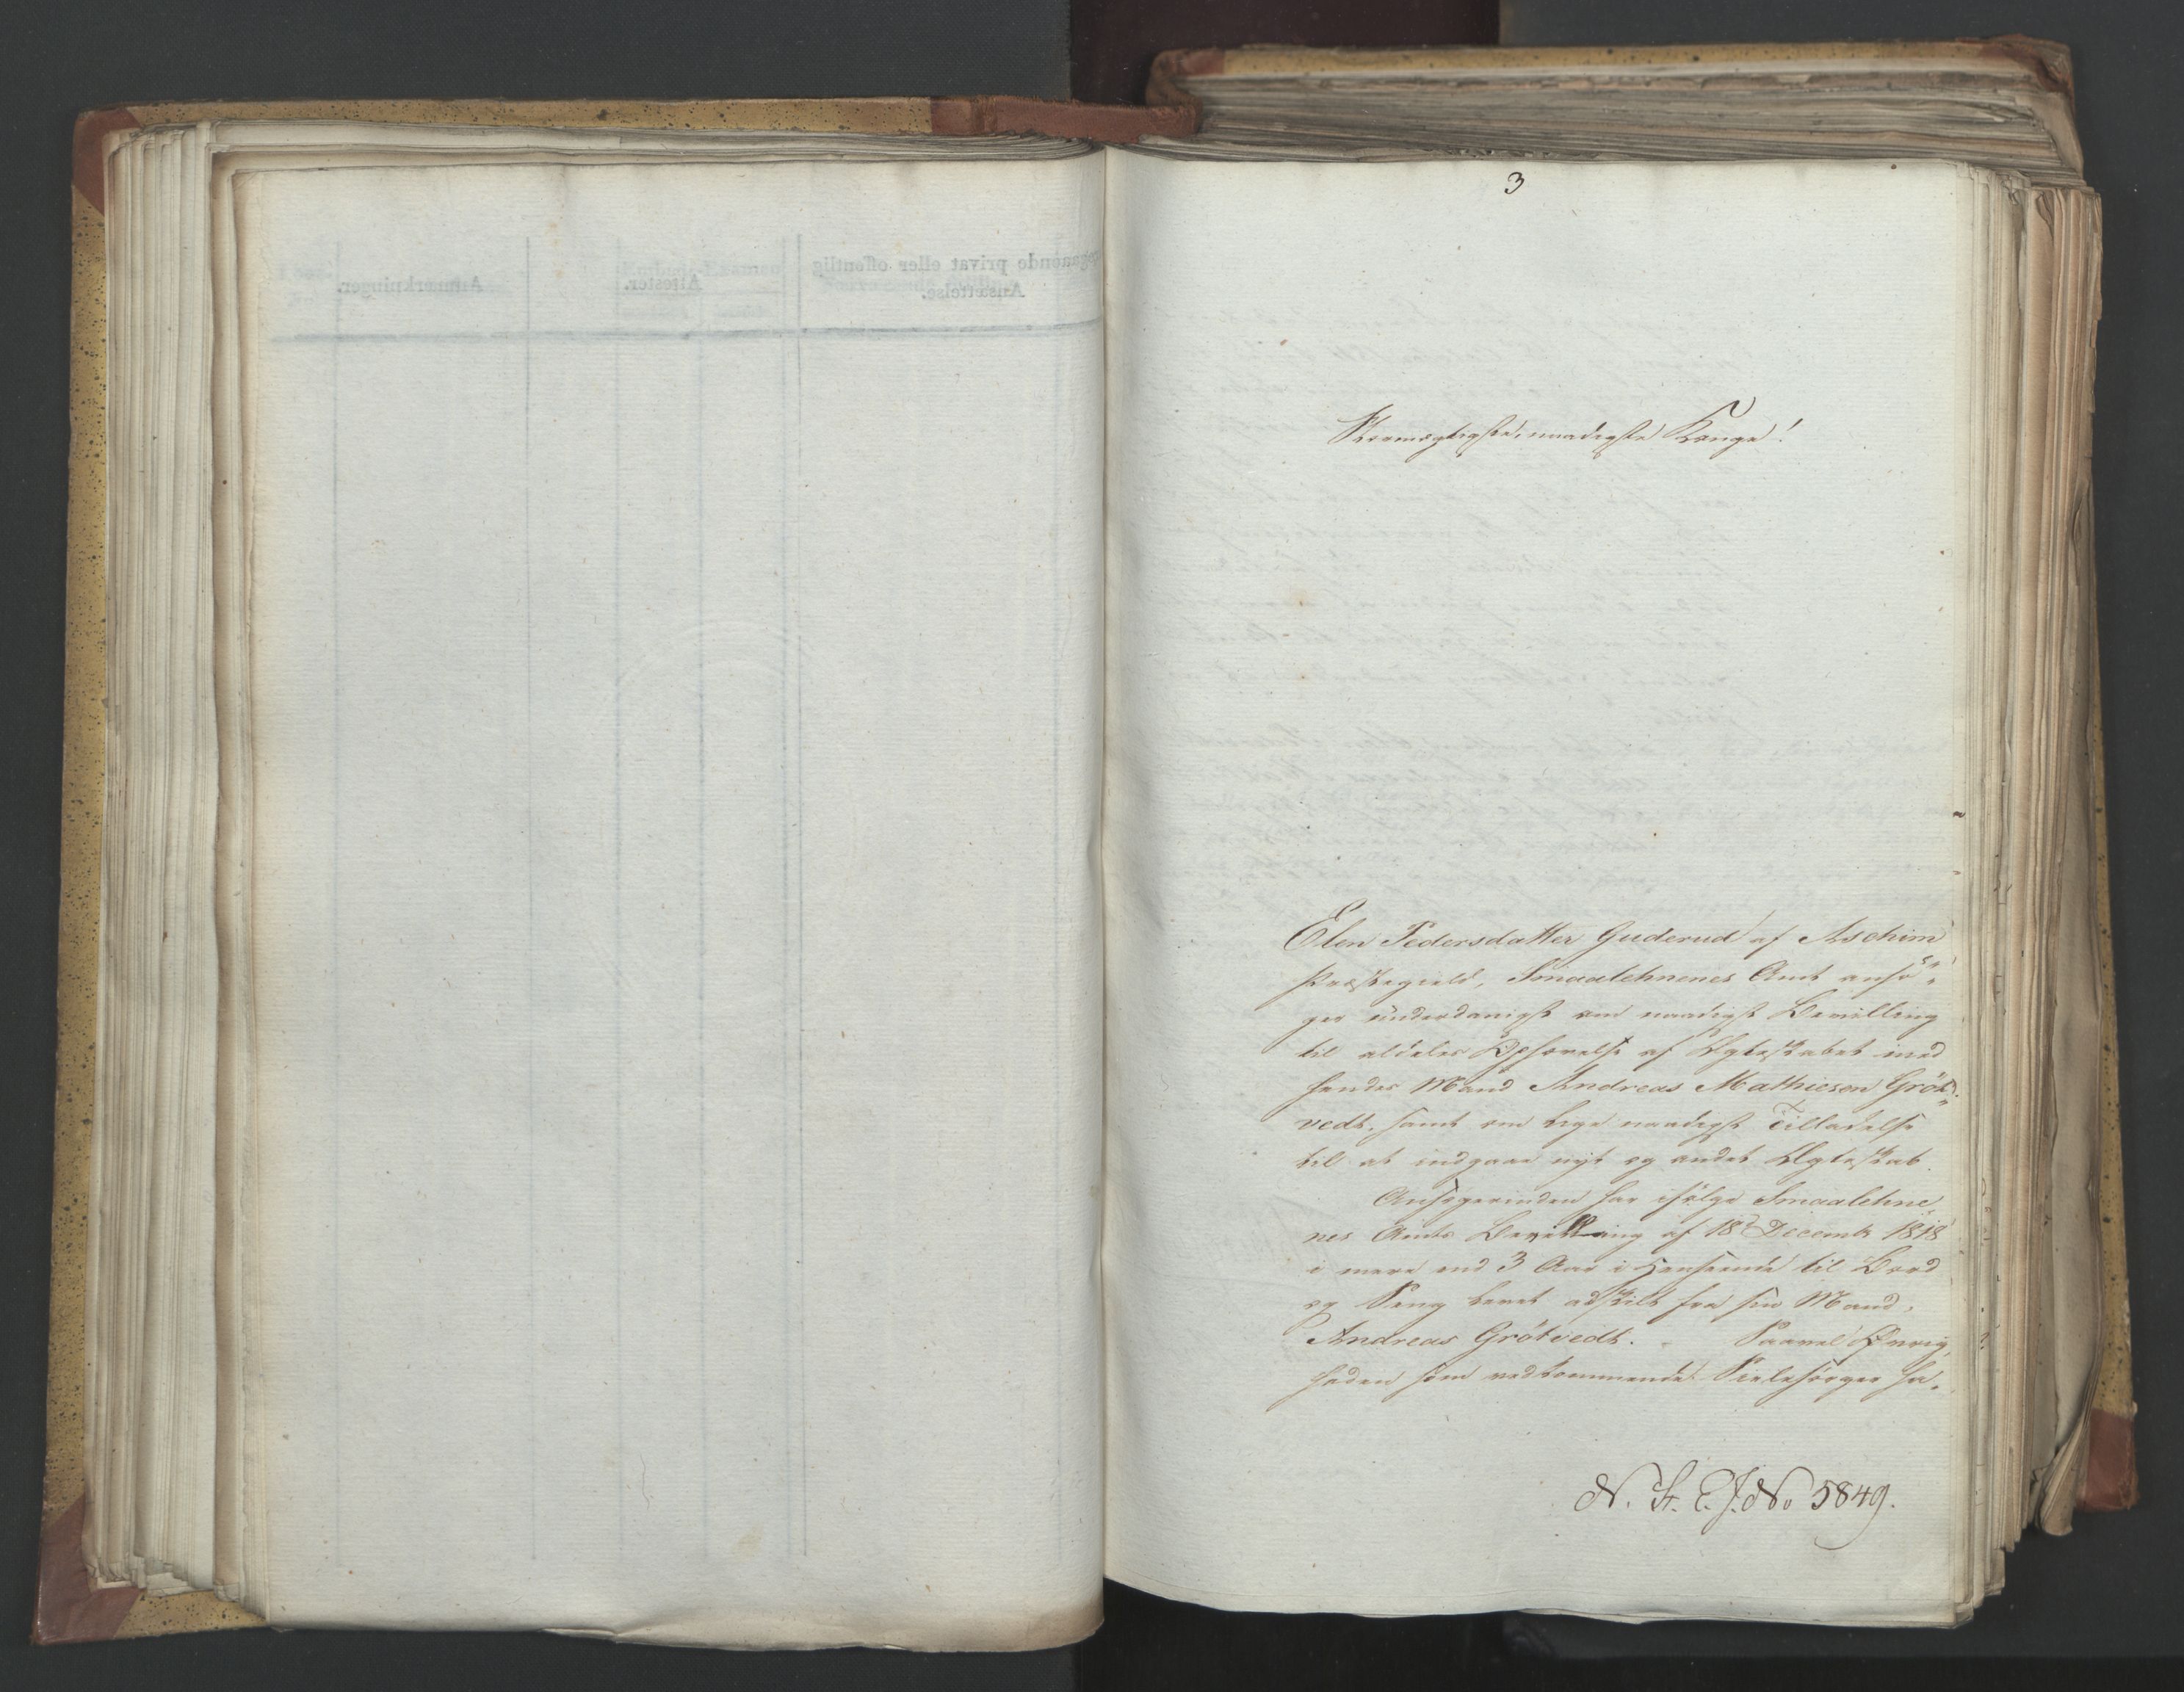 3
Stormægtigste, naadigste Konge!
Elen Pedersdatter Guderud af Aschim
Præstegield, Smaalehnenes Amt ansø„
ger underdanigst om naadigst Bevilling
til aldeles Ophævelse af Ægteskabet med
hendes Mand Andreas Mathiesen Gröt„
vedt, samt om lige naadigst Tilladelse
til at indgaae nyt og andet Ægteskab.
Ansøgerinden har ifølge Smaalehne„
nes Amts Bevilling af 18de Decembr 1818
i mere end 3 Aar i Henseende til Bord
og Seng levet adskilt fra sin Mand,
Andreas Grötvedt. - Saavel Øvrig„
heden som vedkommende Sielesörger ha„
N. St. E. J. No 5849.